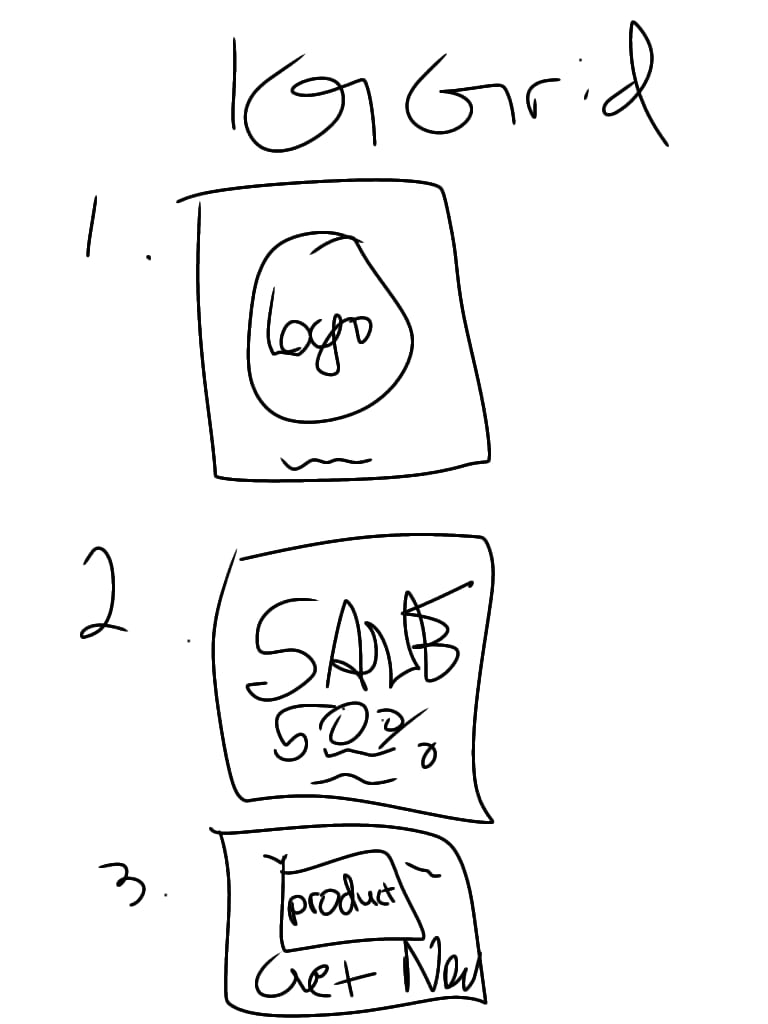 IG Grid
1.
Logo
2.
SALE
50%
3.
product
Get Now